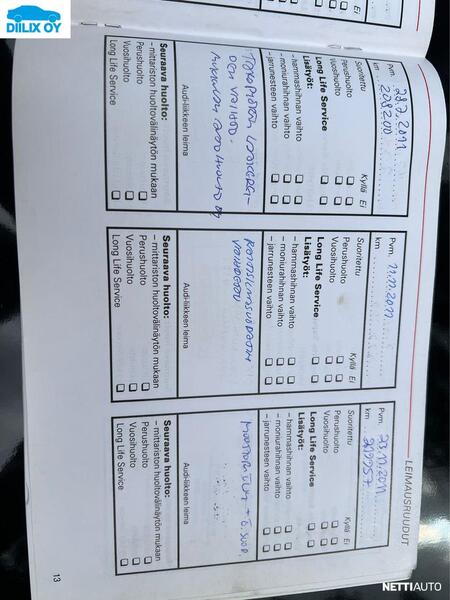 DIILIX OY
LEIMAUSRUUDUT
Ei
Pvm. 28.9.2011
km 208200
Suoritettu Kyllä Ei
Perushuolto
Vuosihuolto
Long Life Service
Lisätyöt:
– hammashihnan vaihto
– moniurahihnan vaihto
– jarrunesteen vaihto
VAIHDO.
Audi-liikkeen leima
Seuraava huolto:
– mittariston huoltovälinäytön mukaan
Perushuolto
Vuosihuolto
Long Life Service
Pvm. 11.11.2011
km
Suoritettu Kyllä Ei
Perushuolto
Vuosihuolto
Long Life Service
Lisätyöt:
– hammashihnan vaihto
– moniurahihnan vaihto
– jarrunesteen vaihto
VAIHDETTU
Audi-liikkeen leima
Seuraava huolto:
– mittariston huoltovälinäytön mukaan
Perushuolto
Vuosihuolto
Long Life Service
Pvm. 23.11.2011
km 212957
Suoritettu Kyllä Ei
Perushuolto
Vuosihuolto
Long Life Service
Lisätyöt:
– hammashihnan vaihto
– moniurahihnan vaihto
– jarrunesteen vaihto
Audi-liikkeen leima
Seuraava huolto:
– mittariston huoltovälinäytön mukaan
Perushuolto
Vuosihuolto
Long Life Service
13
Seuraava huolto:
– mittariston huoltovälinäytön mukaan
Perushuolto
Vuosihuolto
Long Life Service
NETTIAUTO